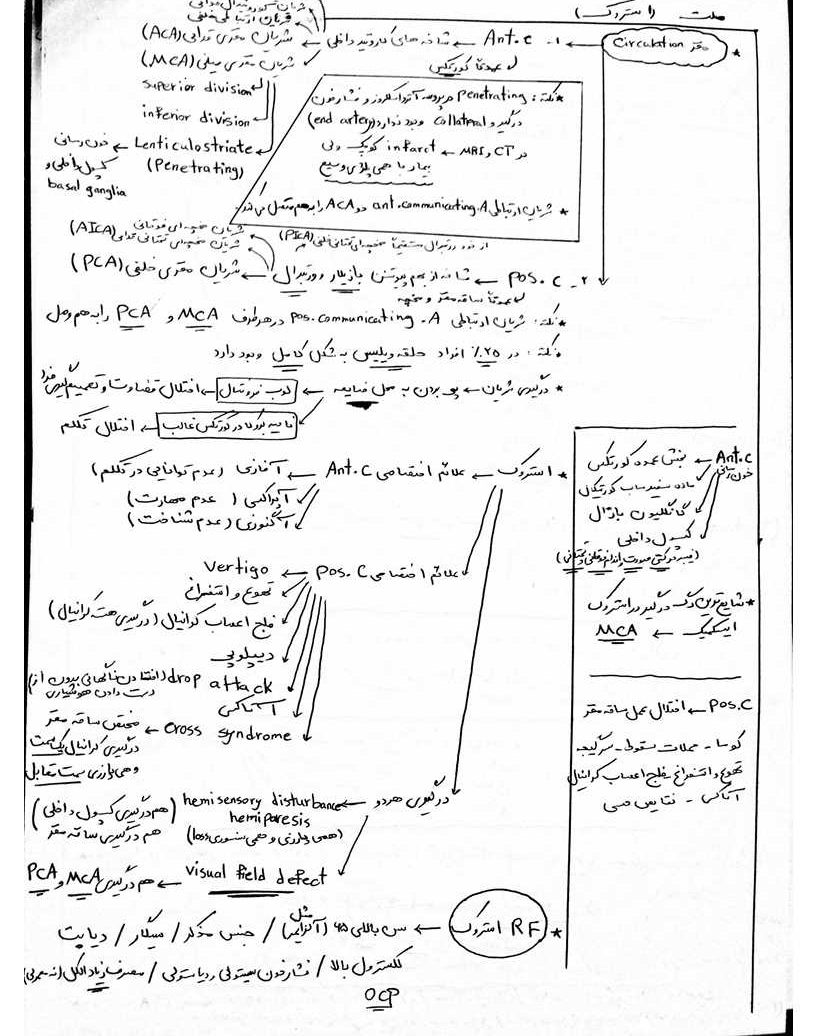 شریان ارتباطی خلفی
★ مغز Circulation
۱- Ant.c ← شاخه های کاروتید داخلی ← شریان مغزی قدامی (ACA)
شریان مغزی میانی (MCA)
عمدتاً کورتکس
superior division
inferior division
Lenticulostriate ← خون رسانی
(Penetrating) کپسول داخلی و
basal ganglia
★ نکته: penetrating در پروسه آترواسکلروز و فشارخون
درگیر و collateral وجود ندارد (end artery)
در MRI, CT ← infarct کوچک ولی
بیمار با همی پلاژی وسیع
★ شریان ارتباطی ant.communicating.A دو ACA را به هم متصل می کند.
شریان مخچه ای فوقانی
شریان مخچه ای تحتانی قدامی (AICA)
از خود ورتبرال مستقیماً مخچه ای تحتانی خلفی (PICA)
۲- pos.c ← شاخه از بهم پیوستن بازیلار و ورتبرال ← شریان مغزی خلفی (PCA)
عمدتاً ساقه مغز و مخچه
★ نکته: شریان ارتباطی pos.communicating.A در هر طرف MCA و PCA را به هم وصل
نکته: در ۲۵٪ افراد حلقه ویلیس به شکل کامل وجود دارد
★ درگیری شریان ← پی بردن به محل ضایعه ← لوب فرونتال ← اختلال قضاوت و تصمیم گیری فرد
ناحیه بروکا در کورتکس غالب ← اختلال تکلم
★ استروک ← علائم اختصاصی Ant.C ← آفازی (عدم توانایی در تکلم)
آپراکسی (عدم مهارت)
آگنوزی (عدم شناخت)
علائم اختصاصی pos.C ← vertigo
تهوع و استفراغ
فلج اعصاب کرانیال (درگیری هسته کرانیال)
دیپلوپی
drop attack (افتادن ناگهانی بدون از
دست دادن هوشیاری)
آتاکسی
cross syndrome ← مختص ساقه مغز
درگیری کرانیال یک سمت
و همی پارزی سمت مقابل
درگیری هردو ← hemisensory disturbance
hemiparesis
(همی پارزی و همی سنسوری loss)
(هم درگیری کپسول داخلی
هم درگیری ساقه مغز)
visual field defect ← هم درگیری MCA و PCA
★ RF استروک ← سن بالای ۶۵ / جنس مذکر / سیگار / دیابت
کلسترول بالا / فشارخون سیستولی و دیاستولی / مصرف زیاد الکل
OCP
Ant.C ← بخش عمده کورتکس
خون رسانی
ماده سفید ساب کورتیکال
گانگلیون بازال
کپسول داخلی
★ شایع ترین رگ درگیر در استروک
ایسکمیک ← MCA
Pos.C ← اختلال عمل ساقه مغز
کوما - حملات سقوط - سرگیجه
تهوع و استفراغ - فلج اعصاب کرانیال
آتاکسی - نقایص حسی